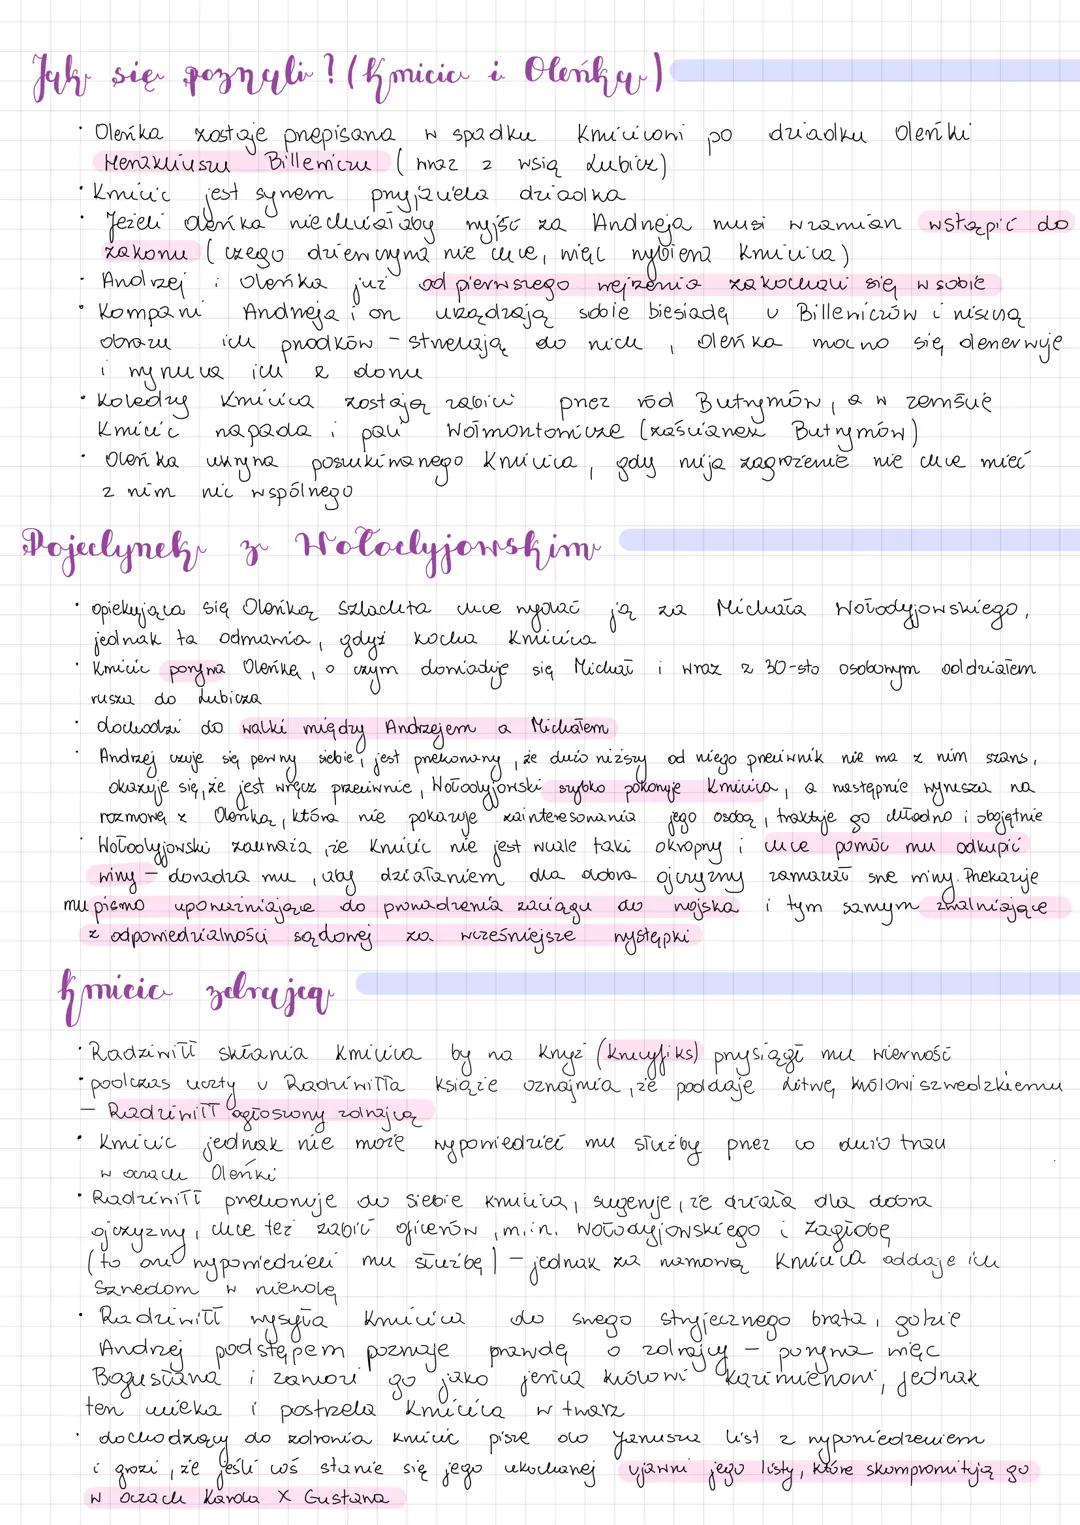 Jak się poznali? (Kmicic i Oleńka)
· Oleńka zostaje przepisana w spadku Kmicicowi po dziadku Oleńki
Herakliuszu Billewiczu (wraz z wsią Lubicz)
· Kmicic jest synem przyjaciela dziadka
· Jeżeli Oleńka nie chciałaby wyjść za Andrzeja musi w zamian wstąpić do
zakonu (czego dziewczyna nie chce, więc wybiera Kmicica)
· Andrzej i Oleńka już od pierwszego wejrzenia zakochali się w sobie
· Kompani Andrzeja i on urządzają sobie biesiadę u Billewiczów i niszczą
obrazy ich przodków - strzelają do nich, Oleńka mocno się denerwuje
i wyrzuca ich z domu
· Koledzy Kmicica zostają zabici przez ród Butrymów, a w zemście
Kmicic napada i pali Wołmontowicze (zaścianek Butrymów)
· Oleńka ukrywa poszukiwanego Kmicica, gdy mija zagrożenie nie chce mieć
z nim nic wspólnego
Pojedynek z Wołodyjowskim
· opiekująca się Oleńką szlachta chce wydać ją za Michała Wołodyjowskiego,
jednak ta odmawia, gdyż kocha Kmicica
· Kmicic porywa Oleńkę, o czym dowiaduje się Michał i wraz z 30-sto osobowym oddziałem
rusza do Lubicza
· dochodzi do walki między Andrzejem a Michałem
· Andrzej czuje się pewny siebie, jest przekonany, że dużo niższy od niego przeciwnik nie ma z nim szans,
okazuje się, że jest wręcz przeciwnie, Wołodyjowski szybko pokonuje Kmicica, a następnie wyrusza na
rozmowę z Oleńką, która nie pokazuje zainteresowania jego osobą, traktuje go chłodno i obojętnie
· Wołodyjowski zauważa, że Kmicic nie jest wcale taki okropny i chce pomóc mu odkupić
winy - doradza mu, aby działaniem dla dobra ojczyzny zamazał swe winy. Przekazuje
mu pismo upoważniające do prowadzenia zaciągu do wojska i tym samym zwalniające
z odpowiedzialności sądowej za wcześniejsze występki
Kmicic zdrajcą
· Radziwiłł skłania Kmicica by na krzyż (krucyfiks) przysiągł mu wierność
· podczas uczty u Radziwiłła książe oznajmia, że poddaje Litwę królowi szwedzkiemu
- Radziwiłł ogłoszony zdrajcą
· Kmicic jednak nie może wypowiedzieć mu służby przez co dużo traci
w oczach Oleńki
· Radziwiłł przekonuje do siebie Kmicica, sugeruje, że działa dla dobra
ojczyzny, chce też zabić oficerów, m.in. Wołodyjowskiego i Zagłobę
(to oni wypowiedzieli mu służbę) - jednak za namową Kmicica oddaje ich
Szwedom w niewolę
· Radziwiłł wysyła Kmicica do swego stryjecznego brata, gdzie
Andrzej podstępem poznaje prawdę o zdrajcy - porywa więc
Bogusława i zawozi go jako jeńca królowi Kazimierzowi, jednak
ten ucieka i postrzela Kmicica w twarz
· dochodzący do zdrowia Kmicic pisze do Janusza list z wypowiedzeniem
i grozi, że jeśli coś stanie się jego ukochanej ujawni jego listy, które skompromitują go
w oczach Karola X Gustawa